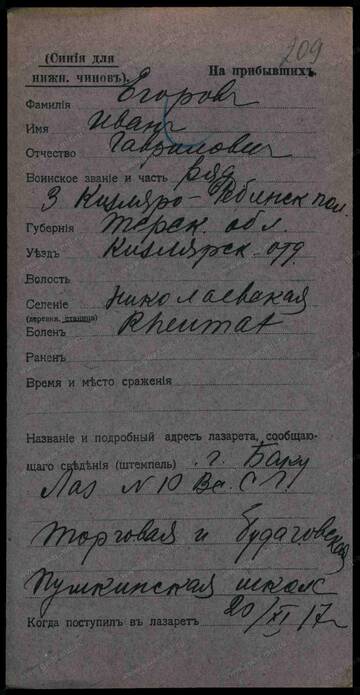 (Синія для
нижн. чиновъ).
На прибывшихъ.
709
Фамилія Егоровъ
Имя Иванъ
Отчество Гавриловичъ
Воинское званіе и часть ряд
3 Кизляро-Гребинск пол.
Губернія Терск. обл.
Уѣздъ Кизлярск. отд
Волость
Селеніе Николаевская
(деревня, станица)
Боленъ Rheumat
Раненъ
Время и мѣсто сраженія
Названіе и подробный адресъ лазарета, сообщаю-
щаго свѣдѣнія (штемпель) г. Баку
Лаз N 10 В. С. Г.
Торговая и Будаговская
Пушкинская школ
Когда поступилъ въ лазаретъ 20/VI 17 г